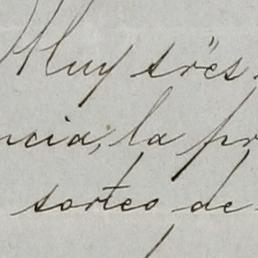 Muy sres
ncia, la pr
sorteo de